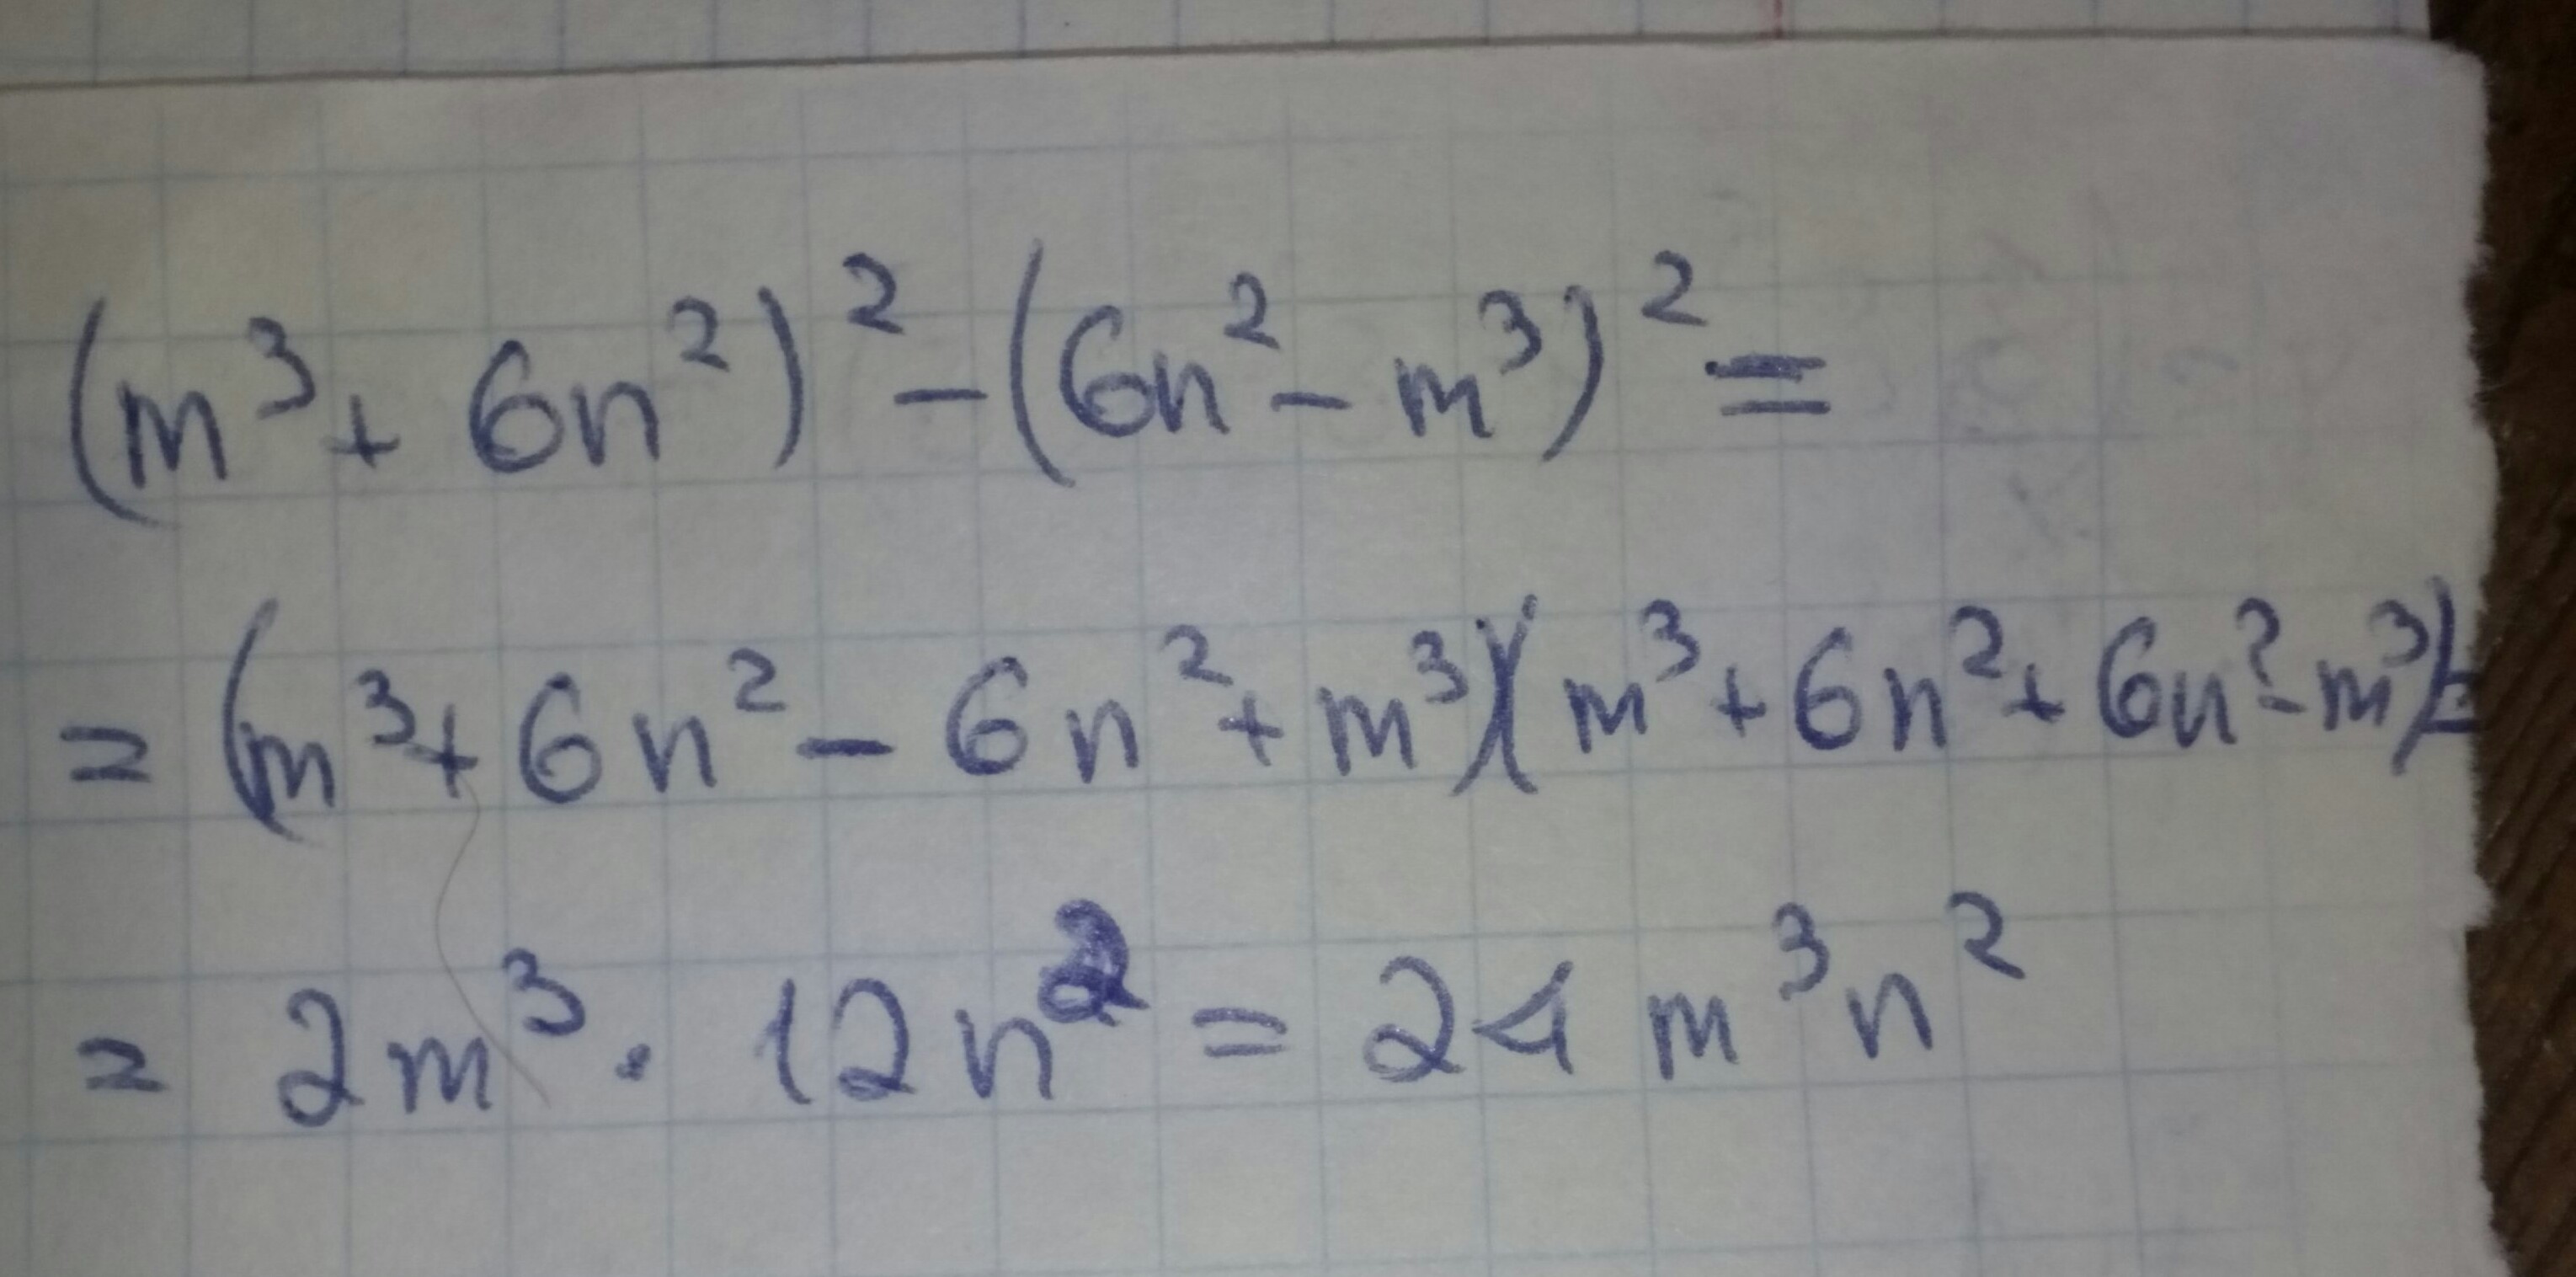 (m³ + 6n²)² - (6n² - m³)² =
= (m³ + 6n² - 6n² + m³)(m³ + 6n² + 6n² - m³) =
= 2m³ · 12n² = 24 m³n²